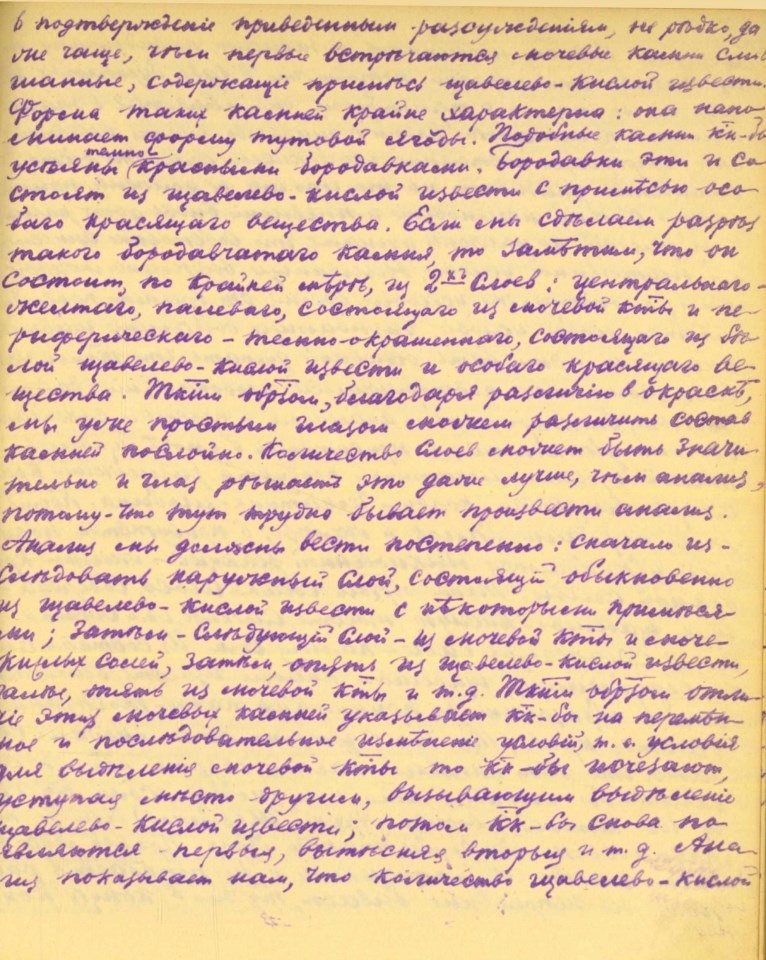 въ подтвержденіе приведеннымъ разсужденіямъ, не рѣдко, да
же чаще, чѣмъ первые встрѣчаются мочевые камни смѣ
шанные, содержащіе примѣсь щавелево-кислой извести.
Форма такихъ камней крайне характерна: она напо
минаетъ форму тутовой ягоды. Подобные камни кк-бы
усѣяны темно красными бородавками. Бородавки эти и со
стоятъ изъ щавелево-кислой извести съ примѣсью осо
баго красящаго вещества. Если мы сдѣлаемъ разрѣзъ
такого бородавчатаго камня, то замѣтимъ, что онъ
состоитъ, по крайней мѣрѣ, изъ 2хъ слоевъ: центральнаго-
желтаго, палеваго, состоящаго изъ мочевой кты и пе-
риферическаго - темно-окрашеннаго, состоящаго изъ бѣ-
лой щавелево-кислой извести и особаго красящаго ве-
щества. Ткимъ обрзомъ, благодаря различію въ окраскѣ,
мы уже простымъ глазомъ можемъ различить составъ
камней послойно. Количество слоевъ можетъ быть значи-
тельно и глазъ рѣшаетъ это даже лучше, чѣмъ анализъ,
потому-что тутъ трудно бываетъ произвести анализъ.
Анализъ мы должны вести постепенно: сначала из-
слѣдовать наружный слой, состоящій обыкновенно
изъ щавелево-кислой извести съ нѣкоторыми примѣся-
ми; затѣмъ - слѣдующій слой - изъ мочевой кты и моче-
кислыхъ солей, затѣмъ, опять изъ щавелево-кислой извести,
далѣе, опять изъ мочевой кты и т.д. Ткимъ обрзомъ отли-
чіе этихъ мочевыхъ камней указываетъ кк-бы на перемѣн-
ное и послѣдовательное измѣненіе условій, т.е. условія
для выдѣленія мочевой кты то кк-бы исчезаютъ,
уступая мѣсто другимъ, вызывающимъ выдѣленіе
щавелево-кислой извести; потомъ кк-бы снова по
являются первыя, вытѣсняя вторыя и т.д. Ана-
лизъ показываетъ намъ, что количество щавелево-кислой